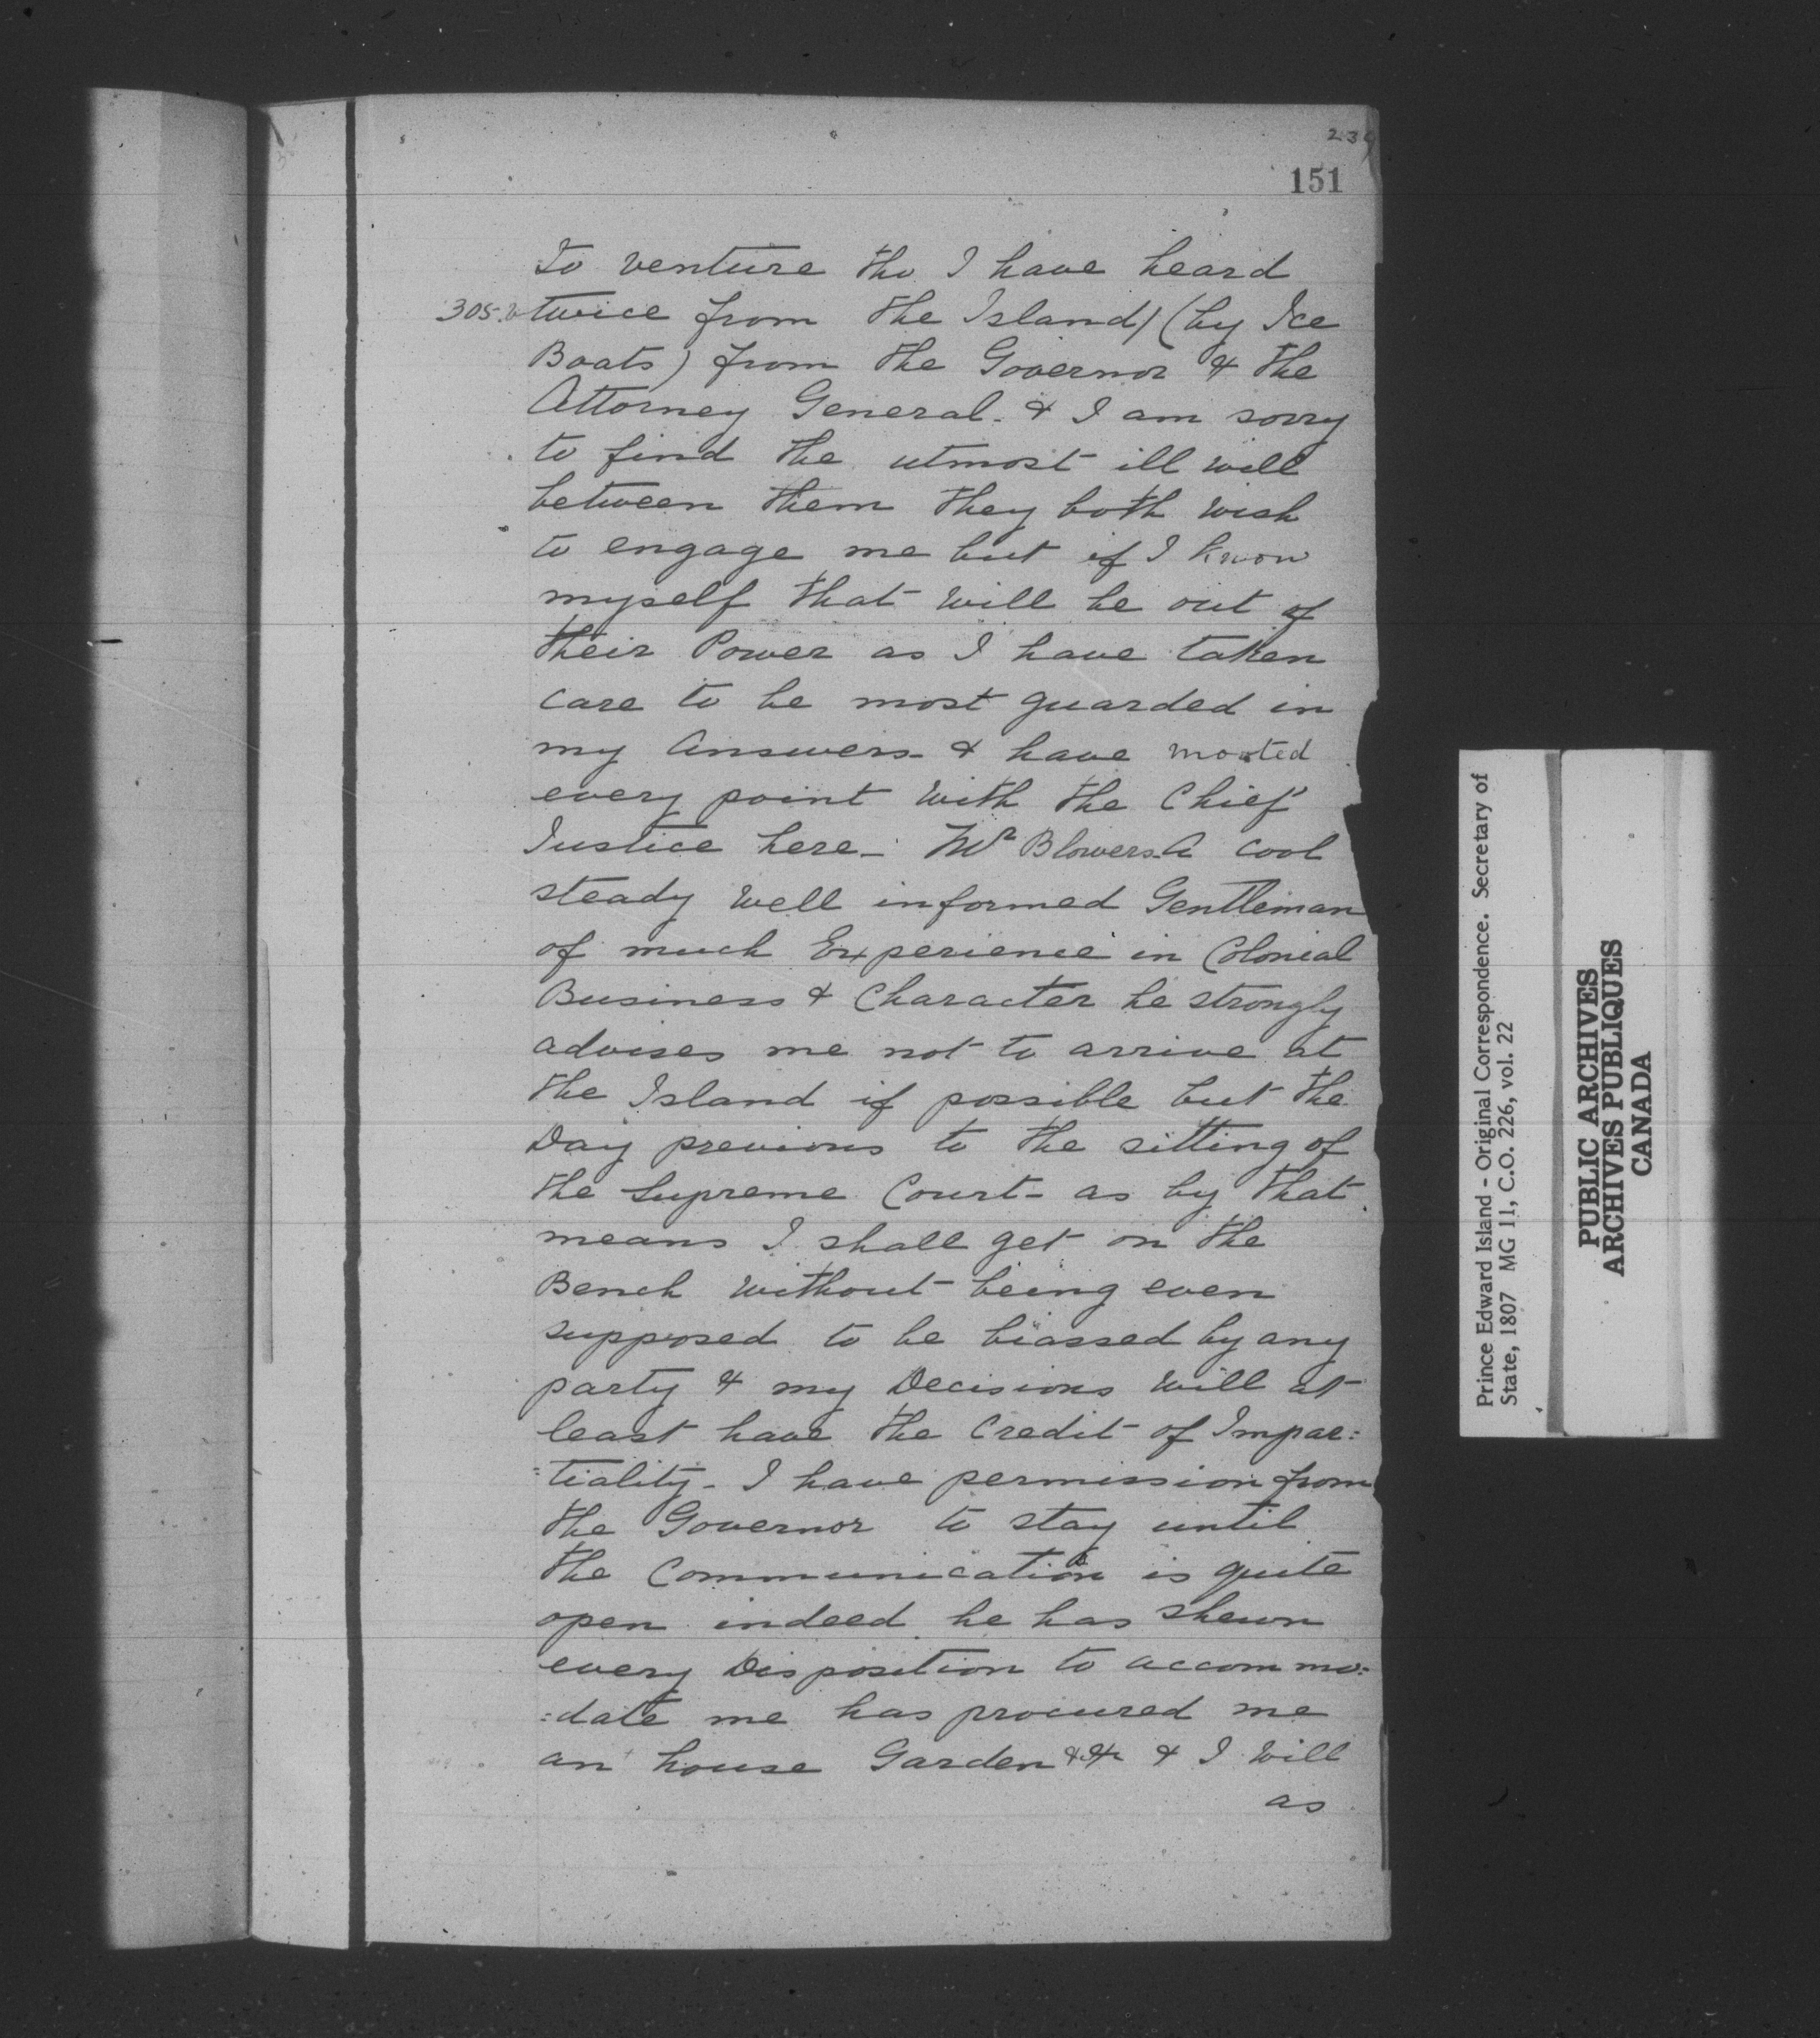 239
151
to venture tho I have heard
305.b twice from the Island) (by Ice
Boats) from the Governor & the
Attorney General. & I am sorry
to find the utmost ill will
between them they both wish
to engage me but if I know
myself that will be out of
their Power as I have taken
care to be most guarded in
my Answers & have mooted
every point with the Chief
Justice here - Mr Blowers. A cool
steady well informed Gentleman
of much Experience in Colonial
Business & Character he strongly
advises me not to arrive at
the Island if possible but the
Day previous to the sitting of
the Supreme Court - as by that
means I shall get on the
Bench without being even
supposed to be biassed by any
party & my Decisions will at
least have the Credit of Impar=
=tiality - I have permission from
the Governor to stay until
the Communication is quite
open indeed he has shewn
every Disposition to accommo=
=date me has procured me
an house Garden &c & I will
as
Prince Edward Island - Original Correspondence. Secretary of
State, 1807 MG 11, C.O. 226, vol. 22
PUBLIC ARCHIVES
ARCHIVES PUBLIQUES
CANADA